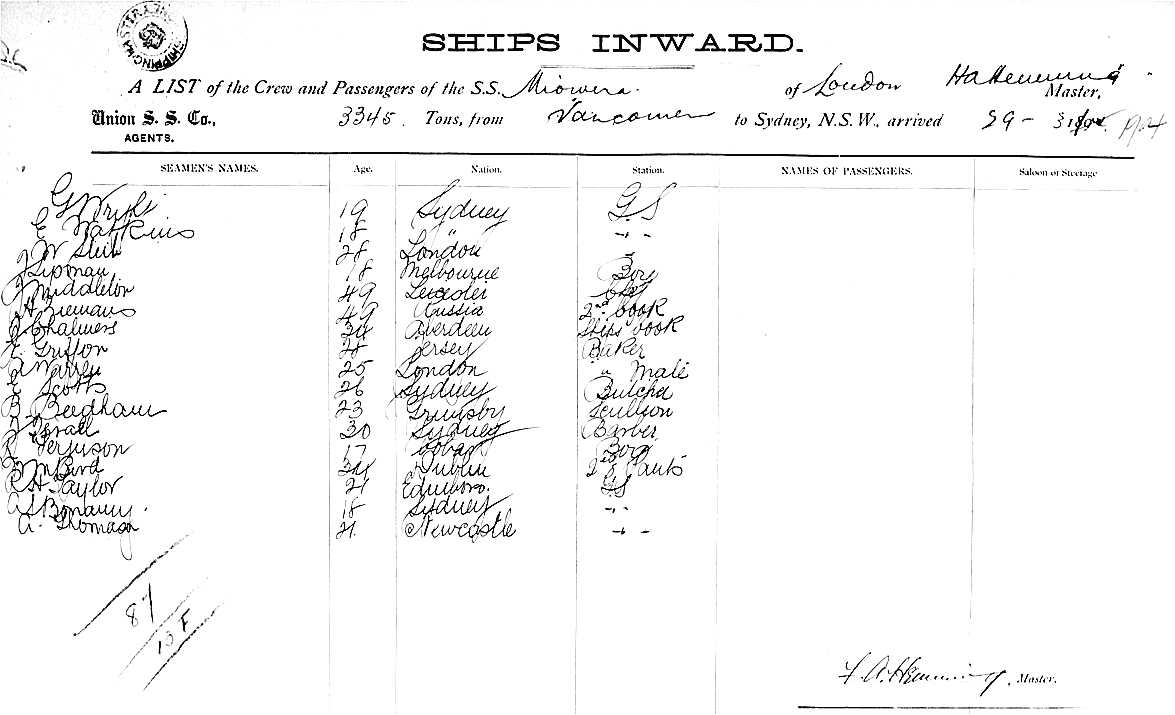 SHIPPING MASTER SYDNEY
SHIPS INWARD.
A LIST of the Crew and Passengers of the S.S. Miowera. of London Master,
Union S. S. Co., 3345. Tons, from Vancouver to Sydney, N.S.W., arrived 29 - 3 1904
AGENTS.
SEAMEN'S NAMES. Age. Nation. Station. NAMES OF PASSENGERS. Saloon or Steerage
G 19 Sydney G.S
E Watkins 18 " - " -
J W 28 London "
18 Melbourne Boy
J Middleton 49 Leicester
H 49 Russia 2nd Cook
Chalmers Aberdeen Ships Cook
Griffon 28 Jersey Baker
Warren 25 London " Mate
E Scotts 26 Sydney Butcher
B. Beedham 23 Grimsby Scullion
30 Sydney Barber
Ferguson 17 Boy
Bird 34 Dublin 2nd
R H Taylor 21 Edinboro. GS
18 Sydney " -
A. Thomason 21. Newcastle - " -
87
10 F
F. A. Hemming, Master.